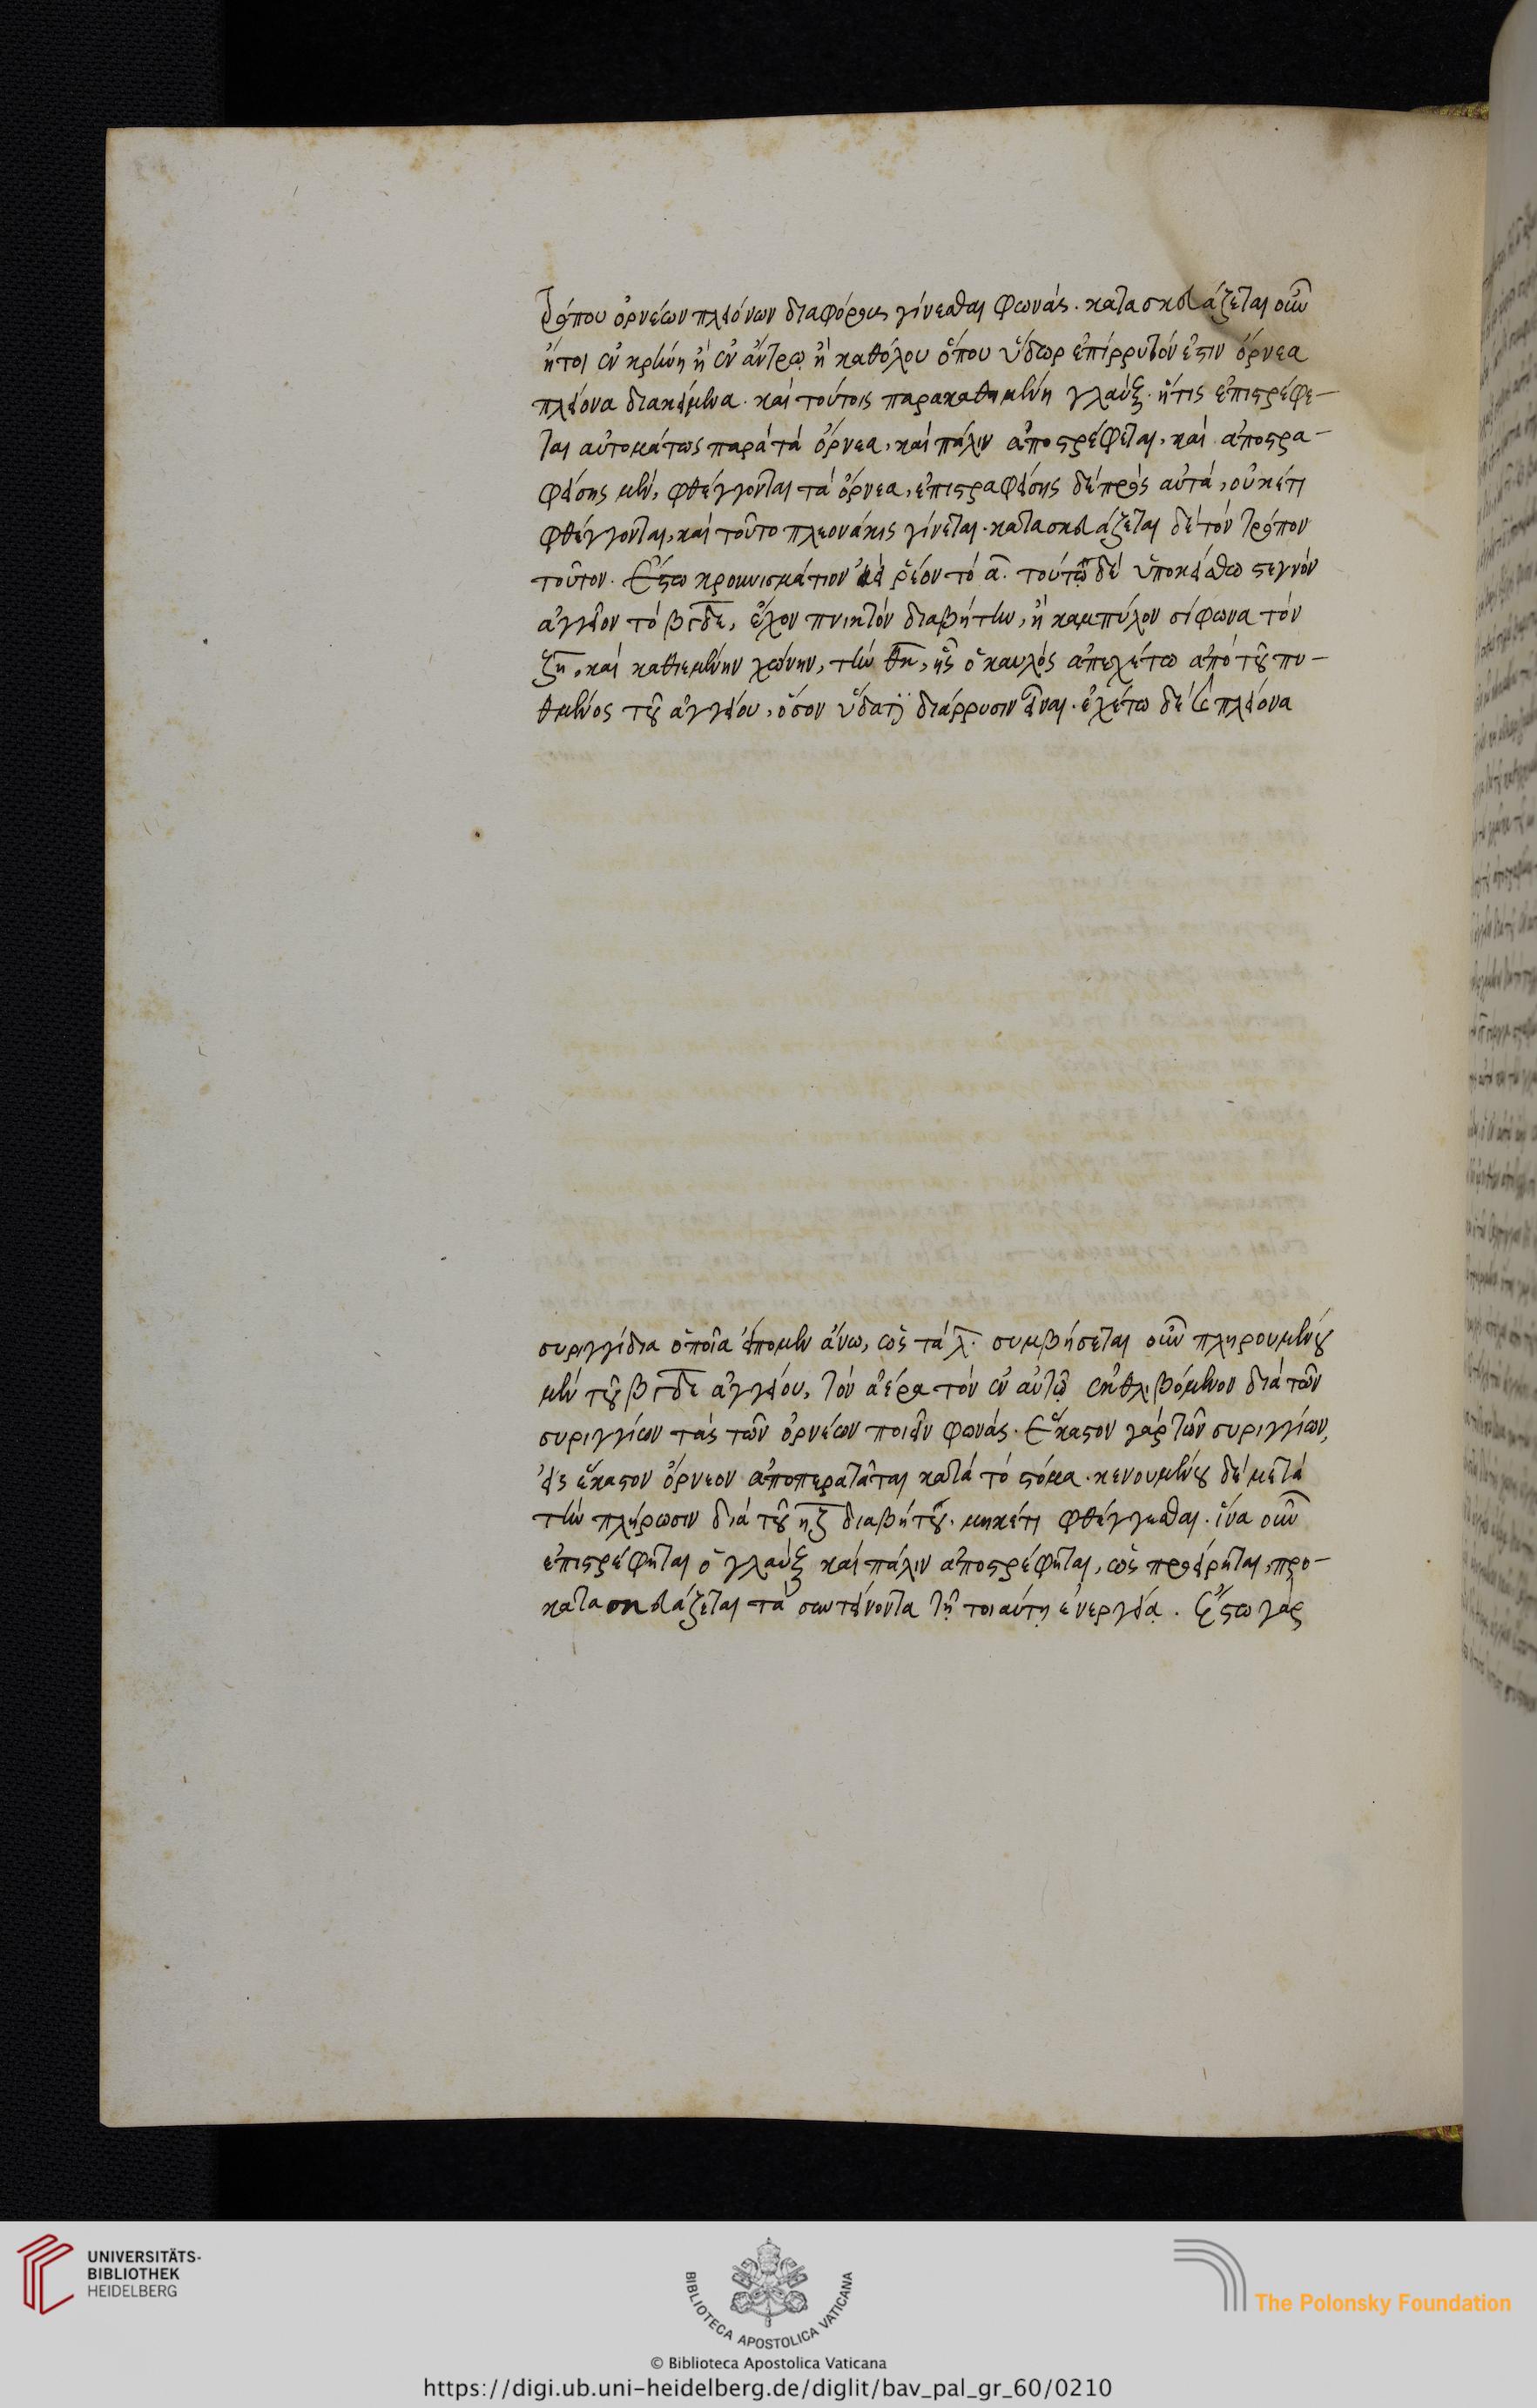 τρόπου ὀρνέων πλειόνων διαφόρους γίνεσθαι φωνάς. κατασκευάζεται οὖν
ἤτοι ἐν κρήνῃ ἢ ἐν ἄντρῳ ἢ καθόλου ὅπου ὕδωρ ἐπίρρυτόν ἐστιν ὄρνεα
πλείονα διακείμενα. καὶ τούτοις παρακαθημένη γλαύξ. ἥτις ἐπιστρέφε-
ται αὐτομάτως παρὰ τὰ ὄρνεα, καὶ πάλιν ἀποστρέφεται, καὶ ἀποστρα-
φείσης μὲν, φθέγγονται τὰ ὄρνεα, ἐπιστραφείσης δὲ πρὸς αὐτά, οὐκέτι
φθέγγονται, καὶ τοῦτο πλεονάκις γίνεται. κατασκευάζεται δὲ τὸν τρόπον
τοῦτον. Ἔστω κρουνισμάτιον ἀεὶ ῥέον τὸ α. τούτῳ δὲ ὑποκείσθω στεγνὸν
ἀγγεῖον τὸ βγδε, ἔχον πνικτὸν διαβήτην, ἢ καμπύλον σίφωνα τὸν
ζη, καὶ καθιεμένην χώνην, τὴν θκ, ἧς ὁ καυλὸς ἀπεχέτω ἀπὸ τοῦ πυ-
θμένος τοῦ ἀγγείου, ὅσον ὕδατι διάρρυσιν εἶναι. ἐχέτω δὲ καὶ πλείονα
συριγγίδια ὁποῖα εἴπομεν ἄνω, ὡς τὰ λ. συμβήσεται οὖν πληρουμένου
μὲν τοῦ βγδε ἀγγείου, τὸν ἀέρα τὸν ἐν αὐτῷ ἐκθλιβόμενον διὰ τῶν
συριγγίων τὰς τῶν ὀρνέων ποιεῖν φωνάς. Ἕκαστον γὰρ τῶν συριγγίων,
εἰς ἕκαστον ὄρνεον ἀποπερατᾶται κατὰ τὸ στόμα. κενουμένου δὲ μετὰ
τὴν πλήρωσιν διὰ τοῦ ηζ διαβήτου. μηκέτι φθέγγεσθαι. ἵνα οὖν
ἐπιστρέφηται ὁ γλαὺξ καὶ πάλιν ἀποστρέφηται, ὡς προείρηται, προ-
κατασκευάζεται τὰ συντείνοντα τῇ τοιαύτῃ ἐνεργείᾳ. Ἔστω γὰρ
UNIVERSITÄTS-
BIBLIOTHEK
HEIDELBERG
BIBLIOTECA APOSTOLICA VATICANA
The Polonsky Foundation
© Biblioteca Apostolica Vaticana
https://digi.ub.uni-heidelberg.de/diglit/bav_pal_gr_60/0210